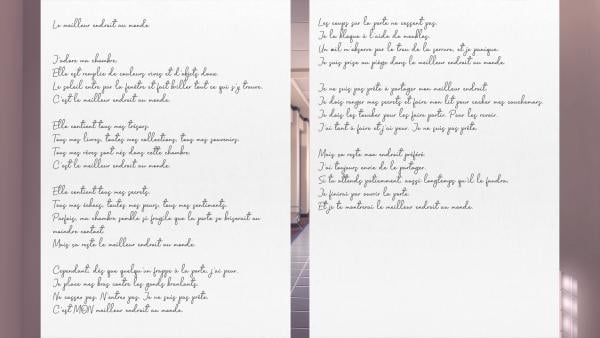 Le meilleur endroit au monde
J'adore ma chambre.
Elle est remplie de couleurs vives et d'objets doux.
Le soleil entre par la fenêtre et fait briller tout ce qui s'y trouve.
C'est le meilleur endroit au monde.
Elle contient tous mes trésors.
Tous mes livres, toutes mes collections, tous mes souvenirs.
Tous mes rêves sont nés dans cette chambre.
C'est le meilleur endroit au monde.
Elle contient tous mes secrets.
Tous mes échecs, toutes mes peurs, tous mes sentiments.
Parfois, ma chambre semble si fragile que la porte se briserait au
moindre contact.
Mais ça reste le meilleur endroit au monde.
Cependant, dès que quelqu'un frappe à la porte, j'ai peur.
Je place mes bras contre les gonds branlants.
Ne cassez pas. N'entrez pas. Je ne suis pas prête.
C'est MON meilleur endroit au monde.
Les coups sur la porte ne cessent pas.
Je la bloque à l'aide de meubles.
Un œil m'observe par le trou de la serrure, et je panique.
Je suis prise au piège dans le meilleur endroit au monde.
Je ne suis pas prête à partager mon meilleur endroit.
Je dois ranger mes secrets et faire mon lit pour cacher mes cauchemars.
Je dois les toucher pour les faire partir. Pour les revoir.
J'ai tant à faire et j'ai peur. Je ne suis pas prête.
Mais ça reste mon endroit préféré.
J'ai toujours envie de le partager.
Si tu attends patiemment, aussi longtemps qu'il le faudra,
Je finirai par ouvrir la porte.
Et je te montrerai le meilleur endroit au monde.